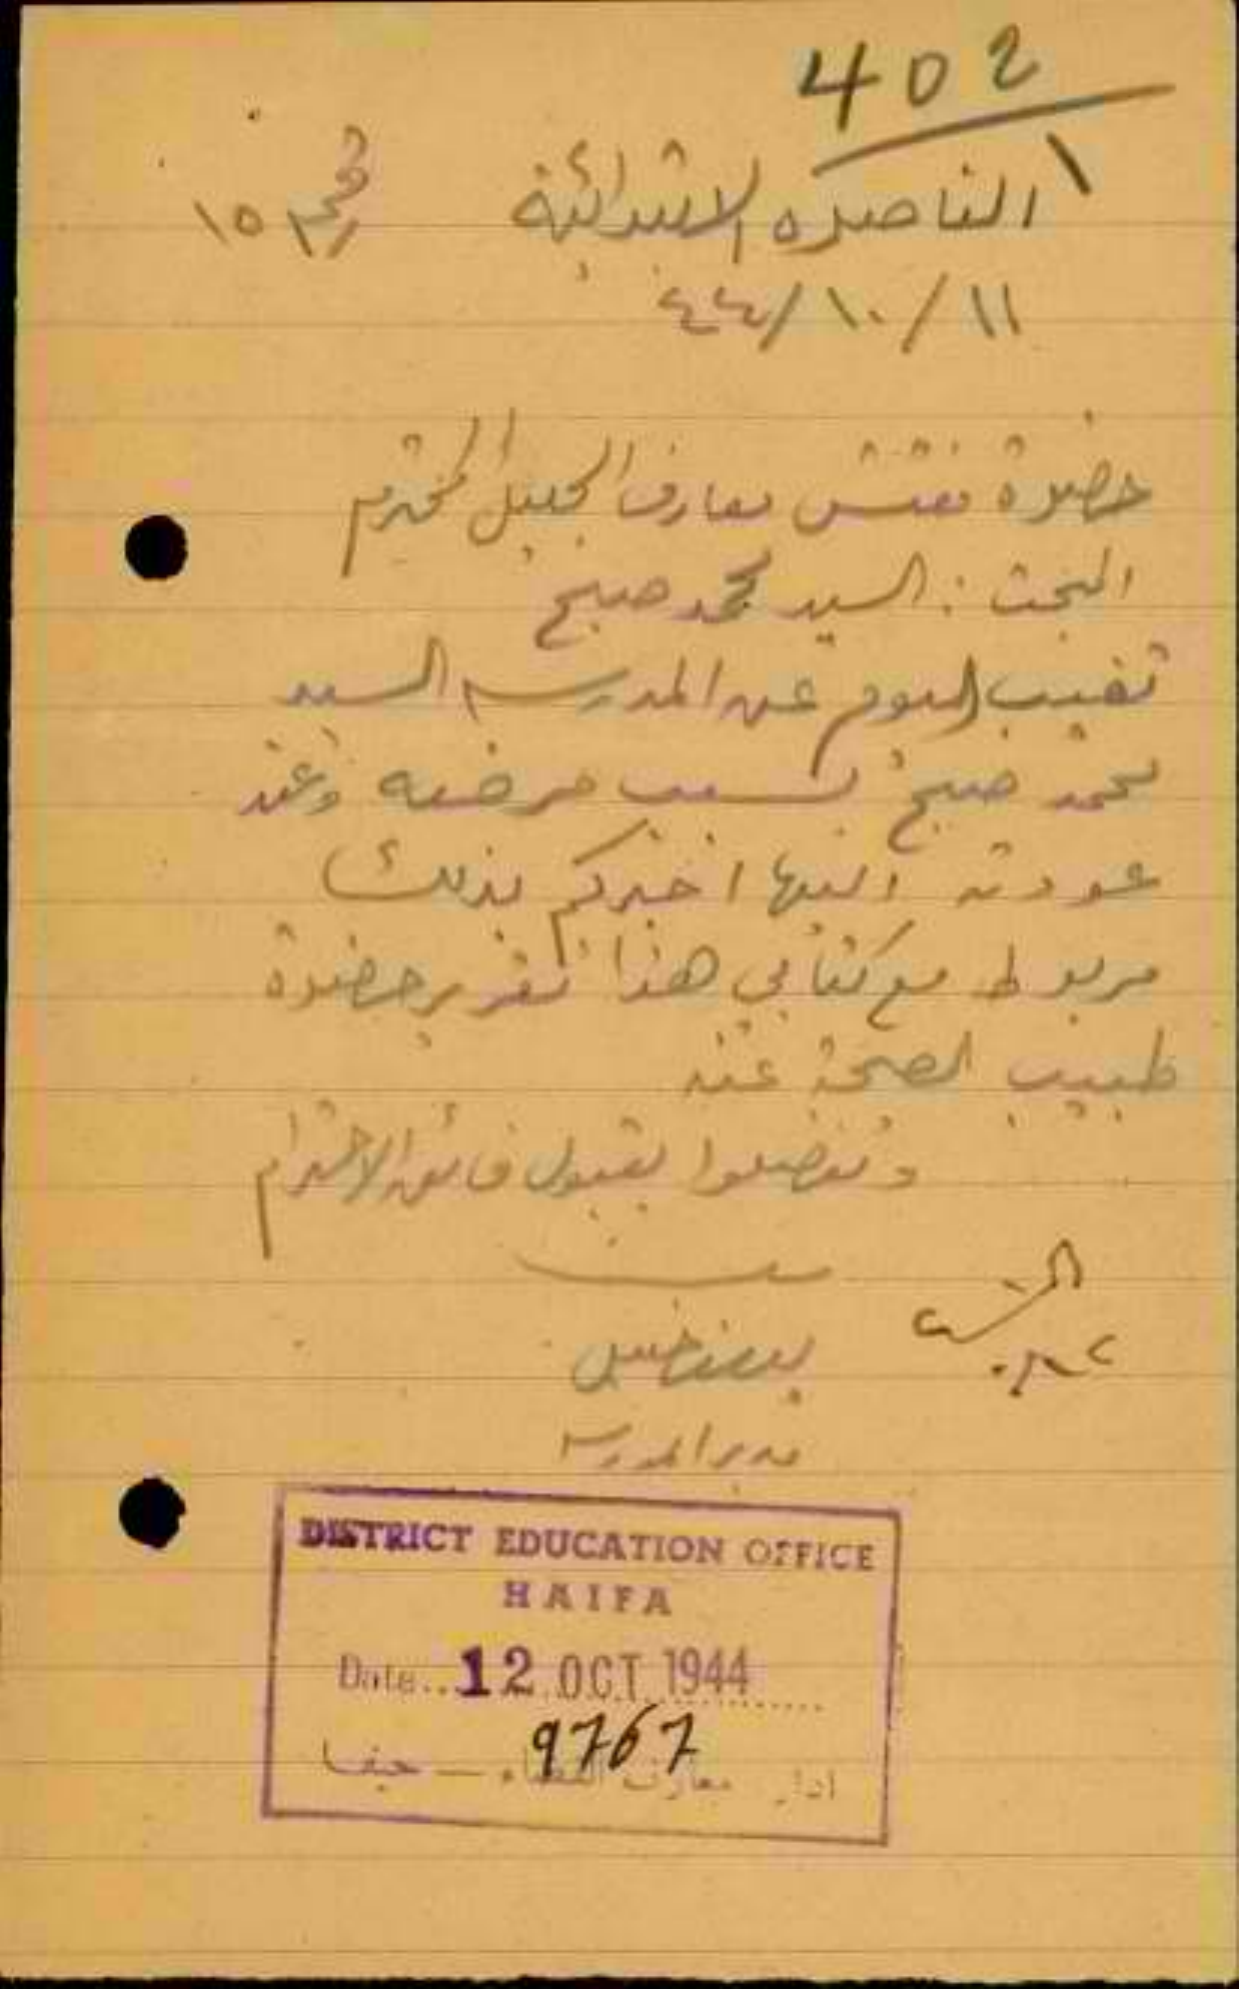 402
الناصره الابتدائية رقم ١٥
٤٤/١٠/١١
حضرة مفتش معارف الجليل المحترم
البحث : السيد محمد صبح
تغيب اليوم عن المدرسه السيد
محمد صبح بسبب مرضه وعند
عودته اليها اخبركم بذلك
مربوط مع كتابي هذا تقرير حضرة
طبيب الصحة عنه
وتفضلوا بقبول فائق الاحترام
مدير المدرسه
DISTRICT EDUCATION OFFICE
HAIFA
Date.. 12 OCT 1944
9767
معارف القضاء — حيفا